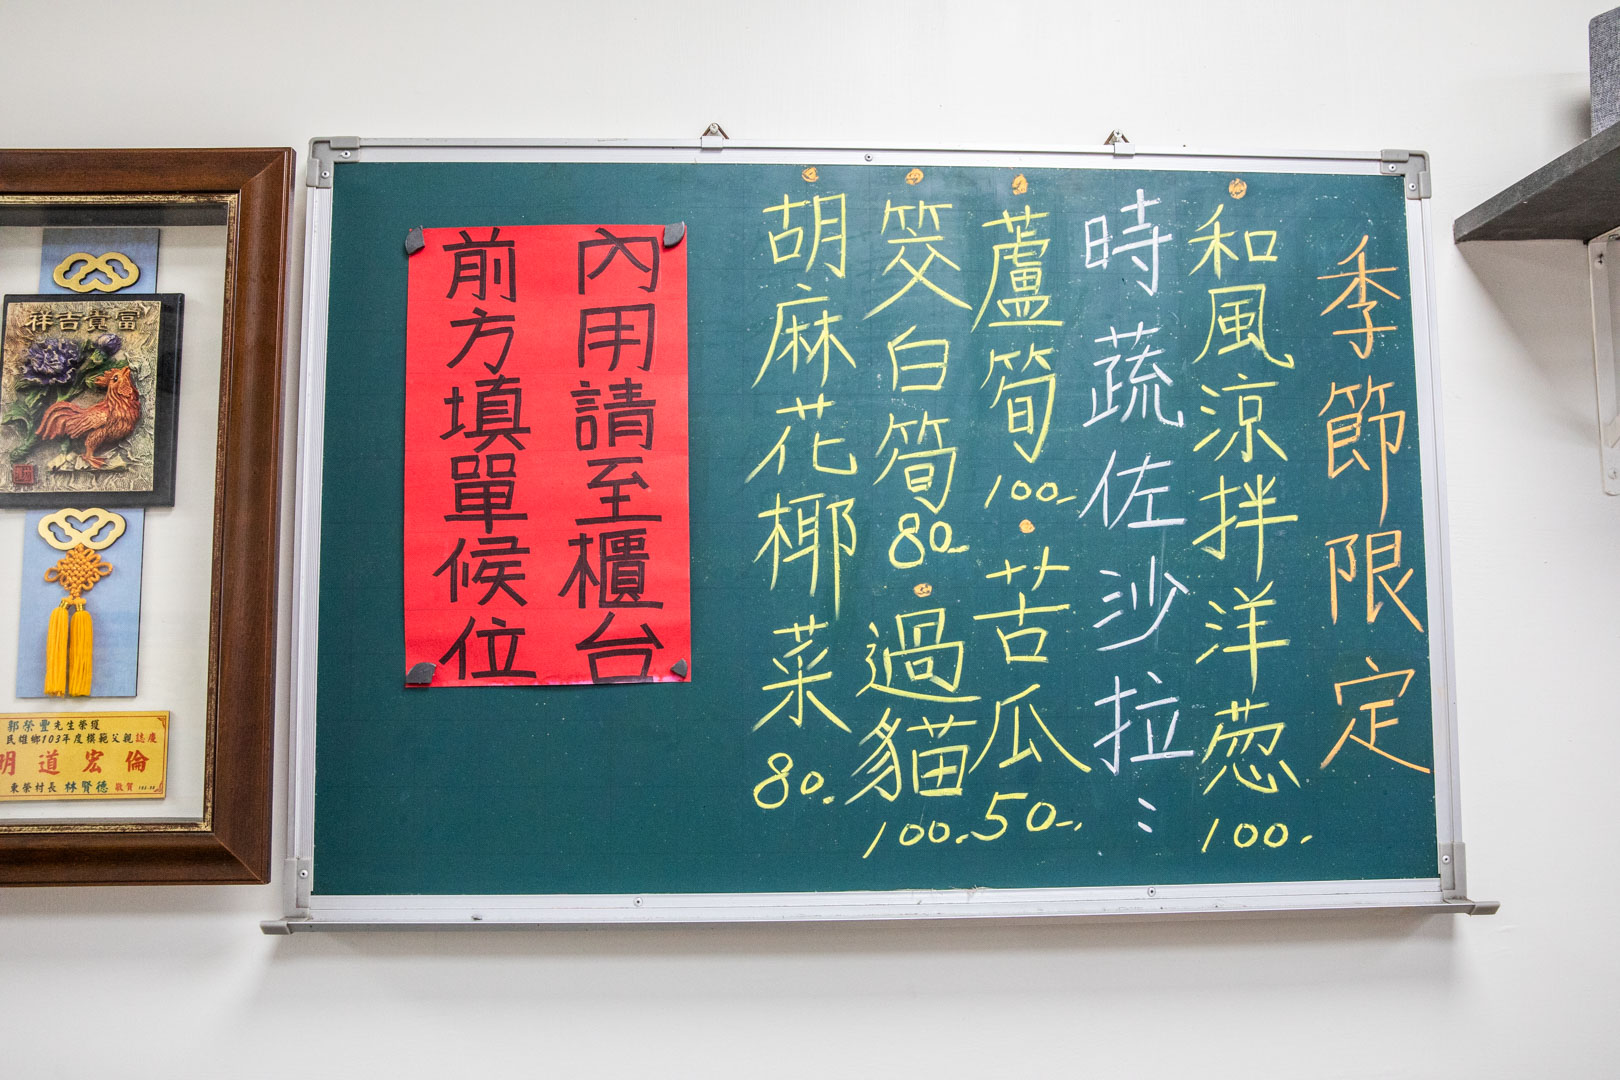 季節限定
和風涼拌洋葱
100.
時蔬佐沙拉：
蘆筍
100-
苦瓜
50-.
筊白筍
80-
過貓
100.
胡麻花椰菜
80.
內用請至櫃台
前方填單候位
富貴吉祥
郭榮豐先生榮獲
民雄鄉103年度模範父親誌慶
明道宏倫
東榮村長 林賢德 敬賀